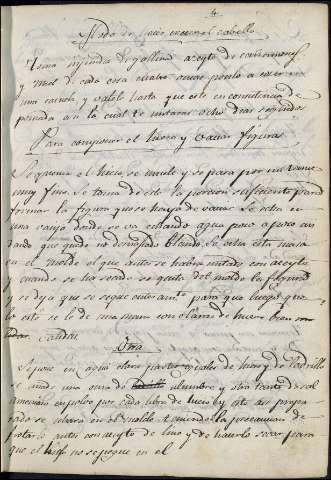 4
Modo de hacer crecer el cabello
Toma enjundia de gallina aceyte de
y miel de cada cosa cuatro onzas ponlo a cocer en
una cazuela y dalola hasta que este en consistencia de
pomada con la cual te untaras ocho dias seguidos
Para componer el hueso y vaciar figuras
Se quema el hueso se muele y se pasa por un tamiz
muy fino. Se toma de esto la porcion suficiente para
formar la figura que se haya de vaciar. Se echa en
una vasija donde se va echando agua poco a poco
dando que quede no demasiado blanda. Se echa esta masa
en el molde el que antes se habra untado con aceyte
y cuando se ha secado se quita del molde la figura
y se deja que se seque enteram.te para que luego que
lo este se le de una mano con claras de huevo bien
batidas
Otra
Se pone en agua clara partes iguales de hueso y de ladrillo
se añade una onza de alumbre y otra tanta de sal
amoniaco en polvo por cada libra de hueso y esto asi prepa-
rado se vaciara en el molde teniendo la precaucion de
frotarlo antes con aceyte de lino y de hacerlo secar para
que el no se pegue en el